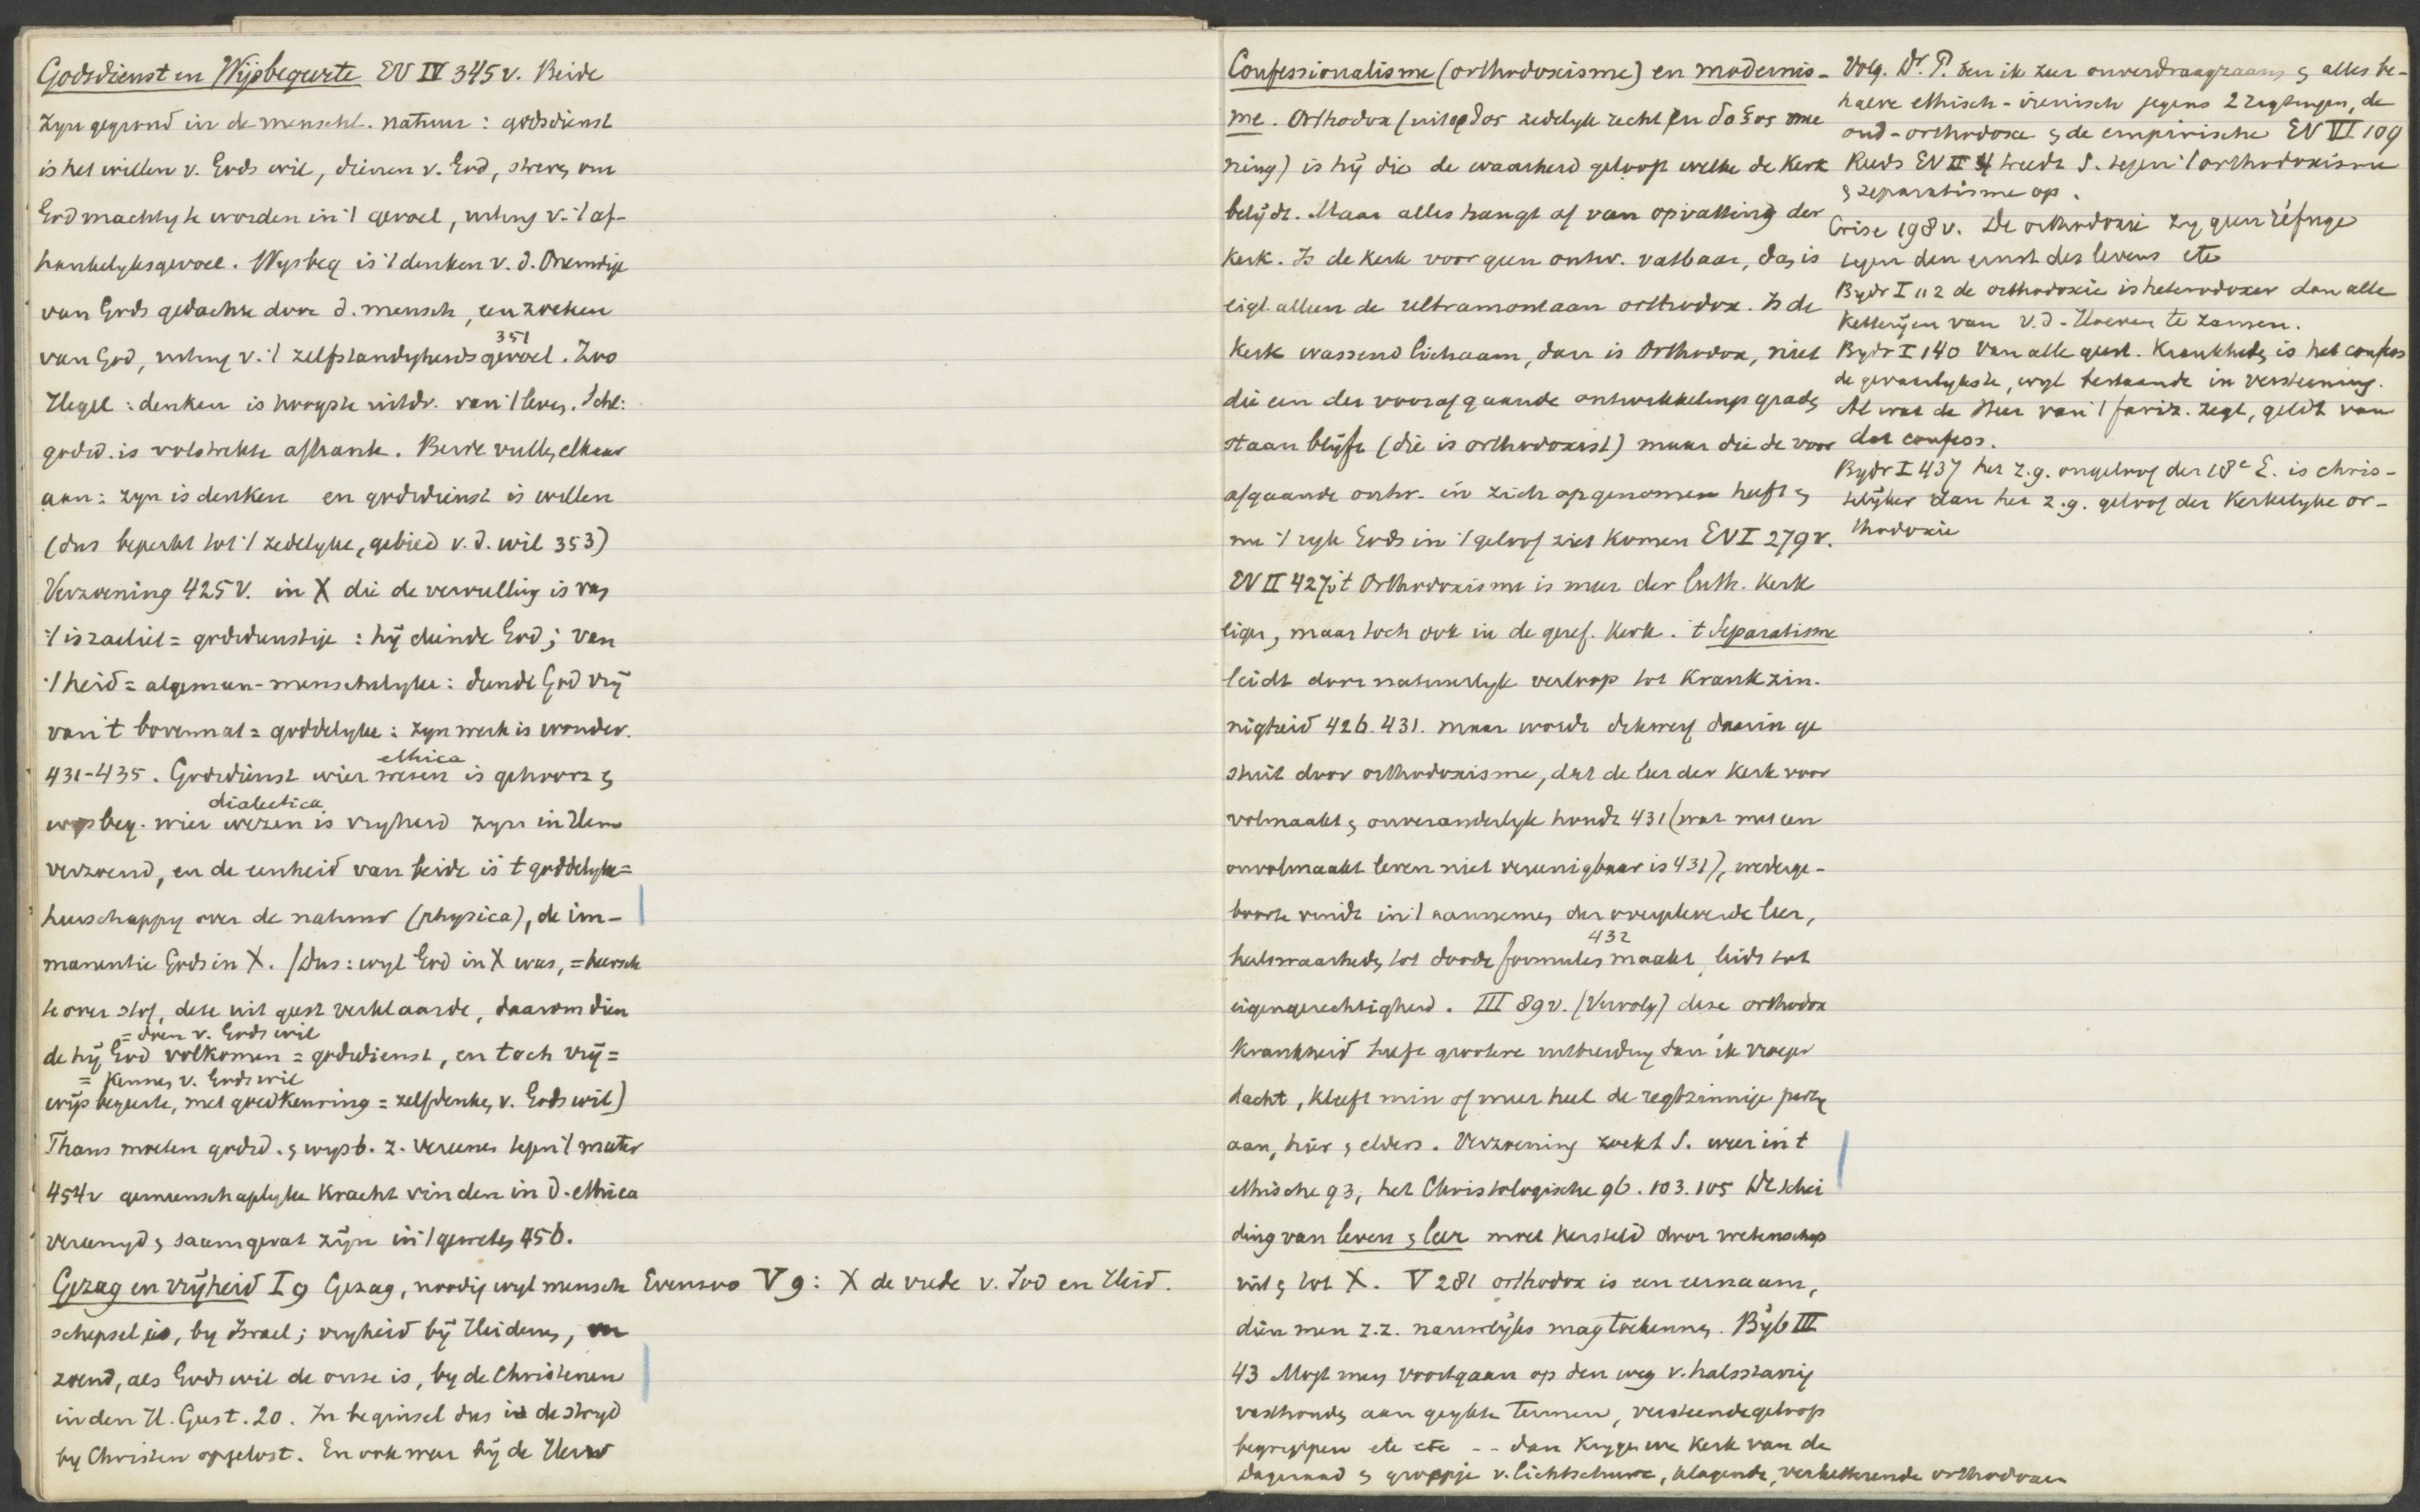 Godsdienst en Wijsbegeerte EV IV 345 v. Beide
zyn gegrond in de menschl. natuur: godsdienst
is het willen v. Gods wil, dienen v. God, om
God machtig te worden in 't gevoel, v. 't af-
hankelykgevoel. Wysbeg is 't denken v. d.
van Gods gedachte door d. mensch, een zoeken
van God, v. 't zelfstandigheidsgevoel. Zoo
351
Hegel: denken is hoogste uitdr. van 't leven. Schl:
godsd. is volstrekte afhank. Beide vullen elkaar
aan: zyn is denken en godsdienst is willen
(dus beperkt tot 't zedelyke, gebied v. d. wil 353)
Verzoening 425 v. in X die de vervulling is van
't israelit = godsdienstige: hij diende God; van
't heid = algemeen-menschelyke: diende God vrij
van 't bovennat = goddelyke: zyn werk is wonder.
431-435. Godsdienst wier wezen is gehoorz en
ethica
wysbeg. wier wezen is vryheid zyn in Hem
dialectica
verzoend, en de eenheid van beide is 't goddelyke =
heerschappy over de natuur (physica), de im-
manentie Gods in X. (Dus: wyl God in X was, = heersch
te over stof, deze uit geest verklaarde, daarom dien
= doen v. Gods wil
de hij God volkomen = godsdienst, en toch vrij =
= kennen v. Gods wil
wijsbegeerte, met goedkeuring = zelfdenken v. Gods wil)
Thans moeten godsd. en wysb. z. vereenen tegen 't mater
454 v gemeenschaplyke kracht vinden in d. ethica
vereenigd en saamgevat zijn in 't geweten 456.
Gezag en vrijheid I 9 Gezag, noodig wyl mensch Evenzoo V 9: X de vrede v. Jod en Heid.
schepsel is, by Israel; vryheid bij Heidenen, ver
zoend, als Gods wil de onze is, by de Christenen
in den H. Geest. 20. In beginsel dus is de stryd
by Christen opgelost. En ook weer bij de
Confessionalisme (orthodoxisme) en modernis-
me. Orthodox (uit ορθος zedelyk recht en δοξος mee
ning) is hij die de waarheid gelooft welke de Kerk
belydt. Maar alles hangt af van opvatting der
Kerk. Is de kerk voor geen ontw. vatbaar, dan is
eigl. alleen de ultramontaan orthodox. Is de
Kerk wassend lichaam, dan is Orthodox, niet
die een der voorafgaande ontwikkelings graden
staan blijft (die is orthodoxist) maar die de voor
afgaande ontw. in zich opgenomen heeft en
nu 't ryk Gods in 't geloof ziet komen EV I 279 v.
EV II 427 't Orthodoxisme is meer der Luth. Kerk
eigen, maar toch ook in de geref. Kerk. 't Separatisme
leidt door natuurlyk verloop tot krankzin-
nigheid 426. 431. maar wordt daarin ge
stuit door orthodoxisme, dat de leer der Kerk voor
volmaakt en onveranderlyk houdt 431 (wat met een
onvolmaakt leven niet vereenigbaar is 431), wederge-
boorte vindt in 't aannemen der overgeleverde leer,
heilswaarheden tot doode formules maakt, leidt tot
432
eigengerechtigheid. III 89 v. (Vervolg) deze orthodox
Krankheid heeft grootere uitbreiding dan ik vroeger
dacht, kleeft min of meer heel de regtzinnige party
aan, hier en elders. Verzoening zoekt S. weer in 't
ethische 93, het Christologische 96. 103. 105 De schei
ding van leven en leer moet hersteld door wetenschap
uit en tot X. V 281 orthodox is een eernaam,
dien men z.z. nauwlijks mag toekennen. Byb III
43 Mogt men voortgaan op den weg v. halsstarrig
vasthouden aan geykte termen, versteende geloofs
begrippen etc etc -- dan krygen we Kerk van de
dageraad en groepje v. lichtschuwe, klagende, verketterende orthodoxen
Volg. Dr. P. ben ik zeer onverdraagzaam en alles be-
halve ethisch-irenisch jegens 2 rigtingen, de
oud-orthodoxe en de empirische EV VI 109
Reeds EV II 4 treedt S. tegen 't orthodoxisme
en separatisme op.
Crise 198 v. De orthodoxie zy geen réfuge
tegen den ernst des levens etc
Bydr I 112 de orthodoxie is heterodoxer dan alle
Ketteryen van v. d. Hoeven te zamen.
Bydr I 140 Van alle geest. Krankheden is het confess
de gevaarlykste, wyl bestaande in versteening.
Al wat de Heer van 't fariz. zegt, geldt van
dat confess.
Bydr I 437 het z.g. ongeloof der 18e E. is chris-
telijker dan het z.g. geloof der Kerkelyke or-
thodoxie